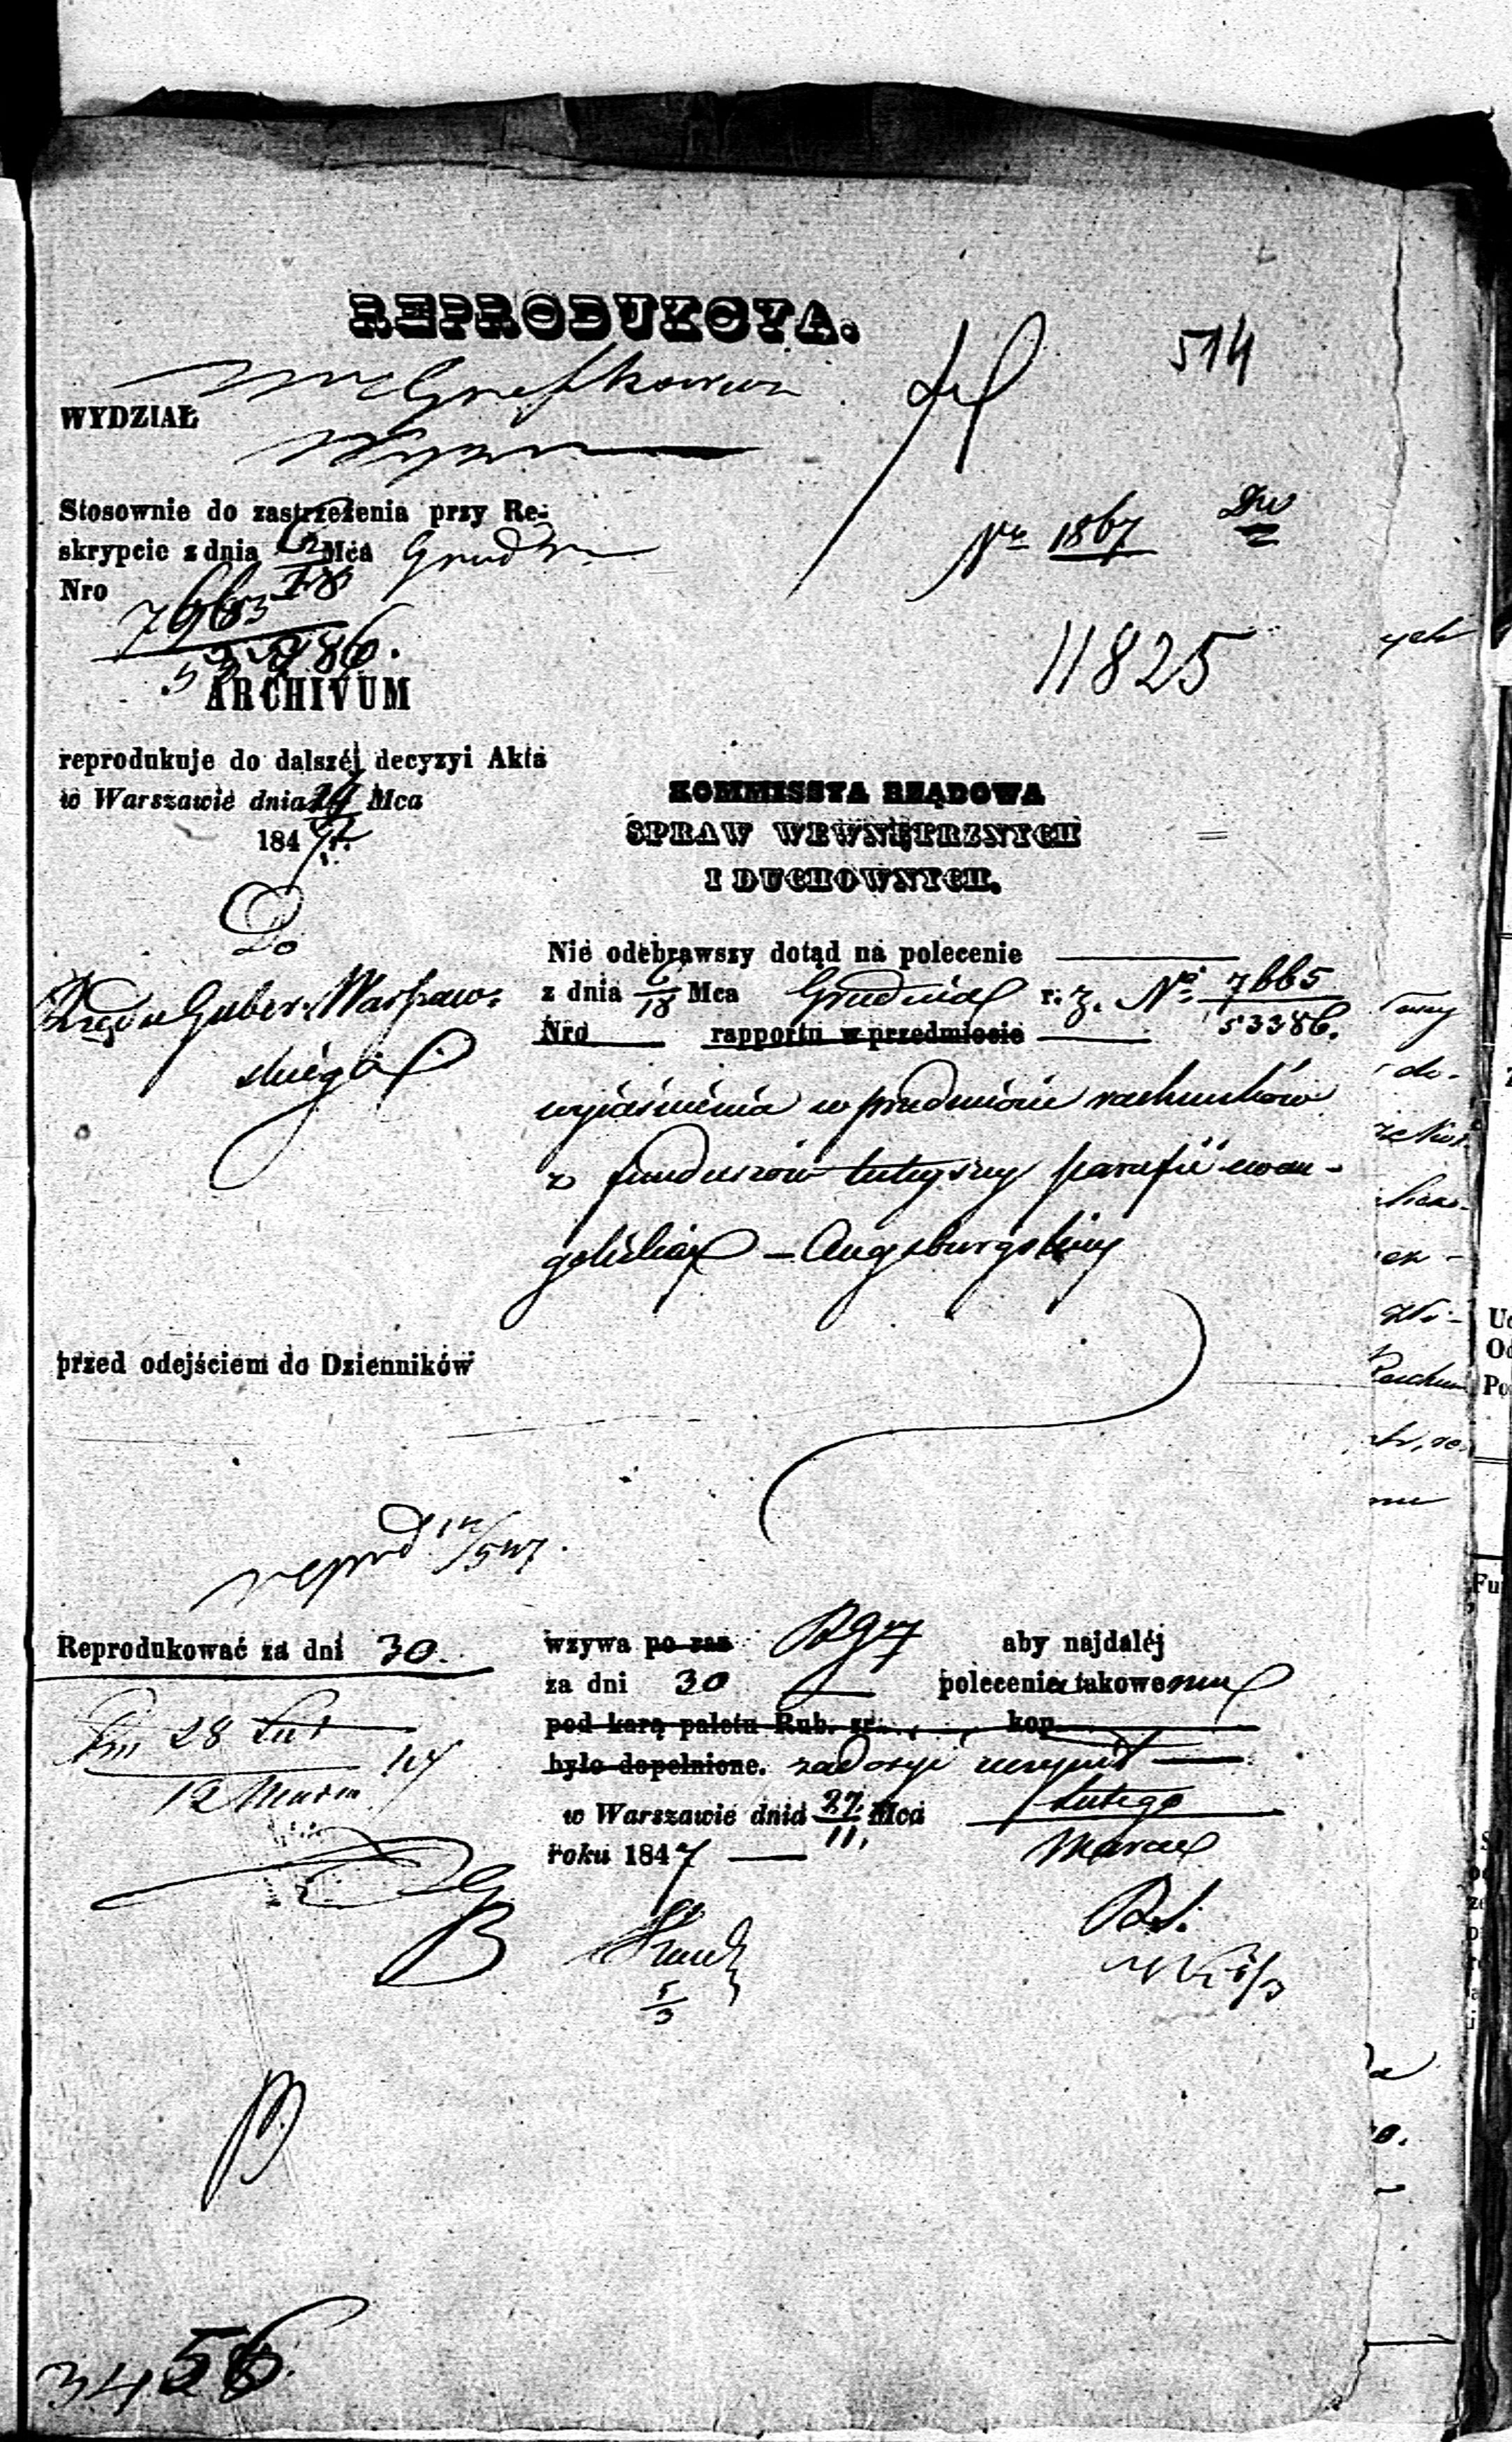 REPRODUKCYA.
514
WYDZIAŁ
Stosownie do zastrzeżenia przy Re-
skrypcie z dnia 6/18 Mca Grudn
Nro 7665
53386.
Nr 1867
11825
ARCHIVUM
reprodukuje do dalszéj decyzyi Akta
w Warszawie dnia Mca
184
Do
Rządu Guber. Warszaw-
skiego
KOMMISSYA RZĄDOWA
SPRAW WEWNĘTRZNYCH
I DUCHOWNYCH.
Nie odebrawszy dotąd na polecenie
z dnia 6/18 Mca Grudnia r. z. No 7665/53386.
Nro rapportu w przedmiocie
wyjaśnienia w przedmiocie rachunków
z funduszów tutejszej parafii ewan-
gelicko-Augsburgskiej
przed odejściem do Dzienników
reprod 12/5 47.
Reprodukować za dni 30.
28 Lut
12 Marca
47
wzywa po raz aby najdaléj
za dni 30 polecenie takowemu
pod karą paletu Rub. sr. kop.
było dopełnione. zadosyć uczynił
w Warszawie dnia 27/11 Mca Lutego
Marca
roku 1847
5/3
3456